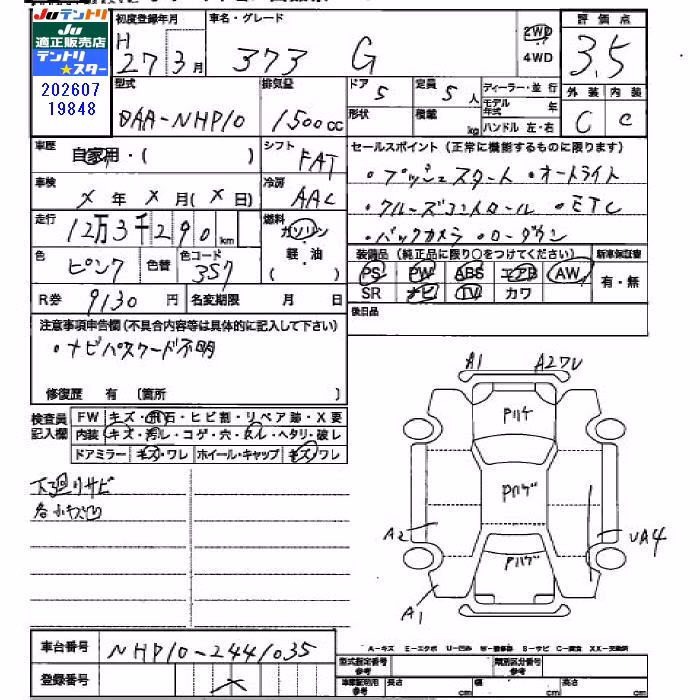 JUテントリ
Ju
適正販売店
テントリ
★スター
202607
19848
初度登録年月
H
27 3月
車名・グレード
373 G
2WD
4WD
評価点
3.5
型式
DAA-NHP10
排気量
1500cc
ドア
5
形状
定員
5人
積載
kg
ディーラー・並行
モデル年式 年
ハンドル 左・右
外装 内装
C C
車歴
自家用・( )
シフト
FAT
セールスポイント(正常に機能するものに限ります)
・プッシュスタート ・オートライト
・クルーズコントロール ・ETC
・バックカメラ ・ローダウン
車検
X年 X月(X日)
冷房
AAC
走行
12万3千290km
燃料
ガソリン
軽・油
( )
色
ピンク
色替
色コード
3S7
装備品(純正品に限り○をつけてください)
新車保証書
PS PW ABS エアB AW
有・無
SR ナビ TV カワ
R券 9130円
名変期限 月 日
後日品
注意事項申告欄(不具合内容等は具体的に記入して下さい)
・ナビパスワード不明
修復歴 有 〔箇所 〕
検査員
記入欄
FW キズ・飛石・ヒビ割・リペア跡・X要
内装 キズ・汚レ・コゲ・穴・スレ・ヘタリ・破レ
ドアミラー キズ・ワレ ホイール・キャップ キズ・ワレ
下廻りサビ
各小キズ凹
A1
A2
Pハゲ
Pハゲ
Pハゲ
A2
UA4
A1
A-キズ E-エクボ U-凹み W-補修跡 S-サビ C-腐食 XX-交換済
車台番号
NHP10-2441035
登録番号
型式指定番号
参考
類別区分番号
参考
長さ cm
幅 cm
高さ cm